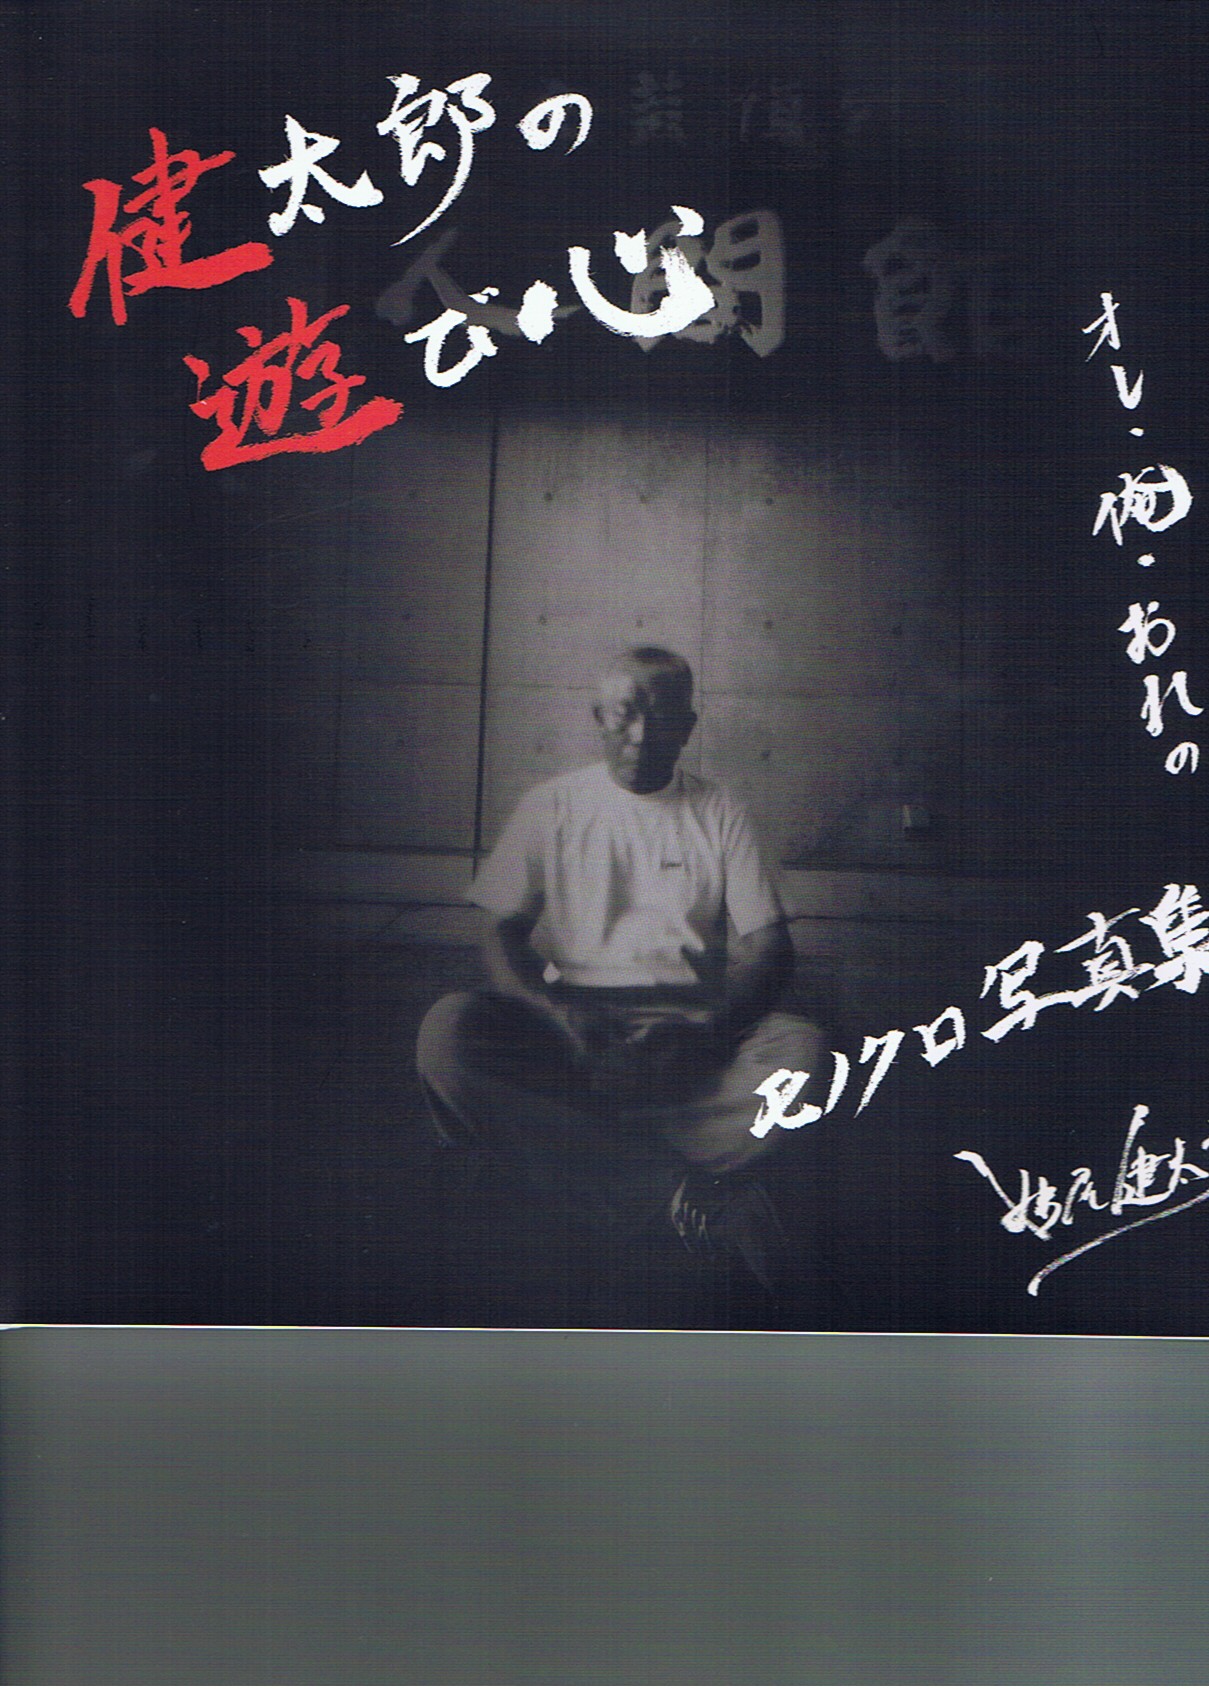 健太郎の
遊び心
オレ・俺・おれの
モノクロ写真集
健太